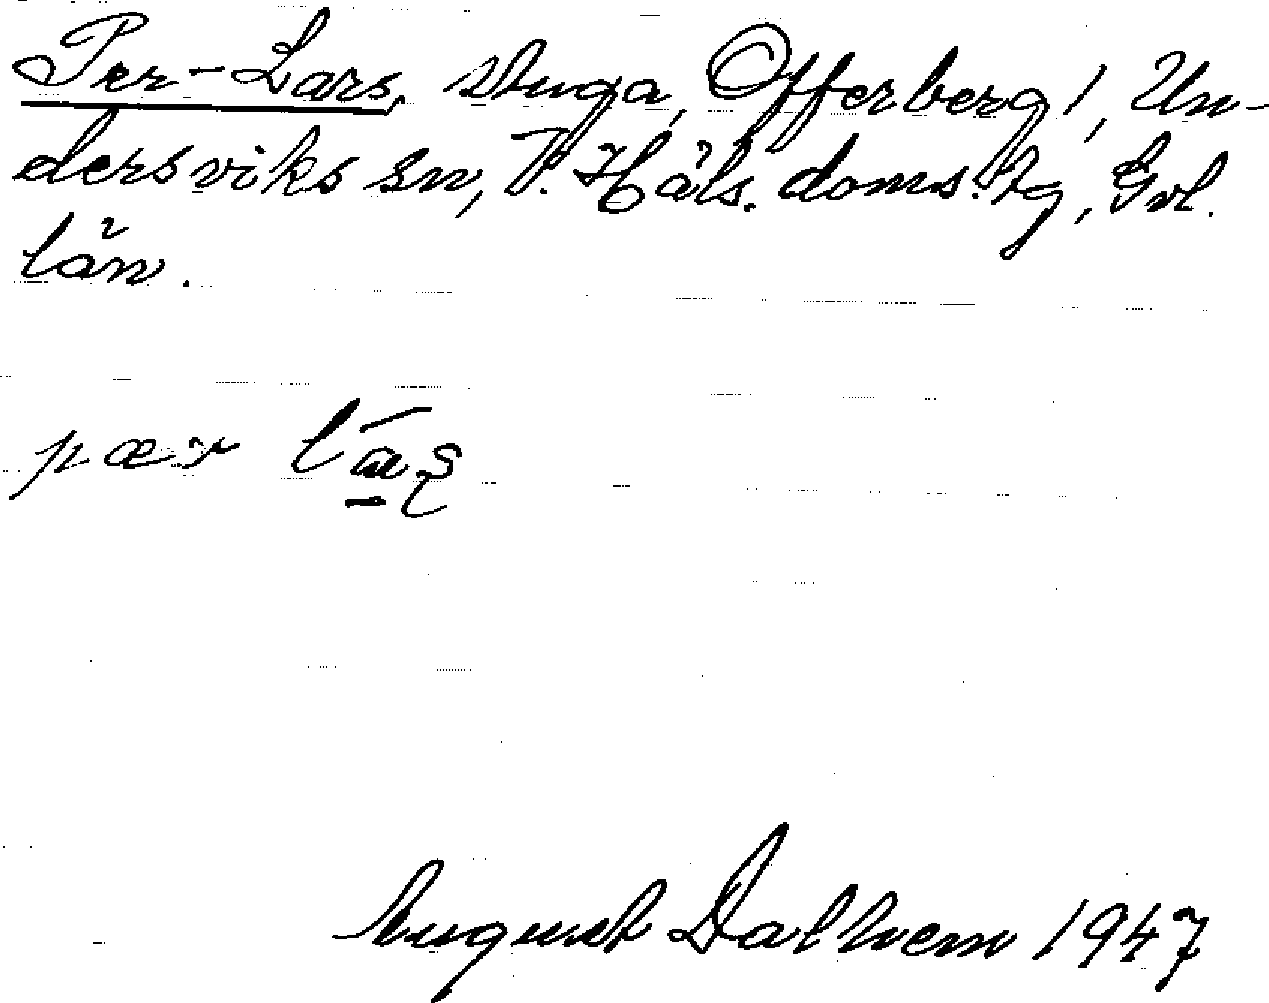 Per-Lars, stuga, Offerberg 1, Un-
dersviks sn, V. Häls. doms.-hg, Gvl.
län.
pær lǽṣ
August Dalhem 1947